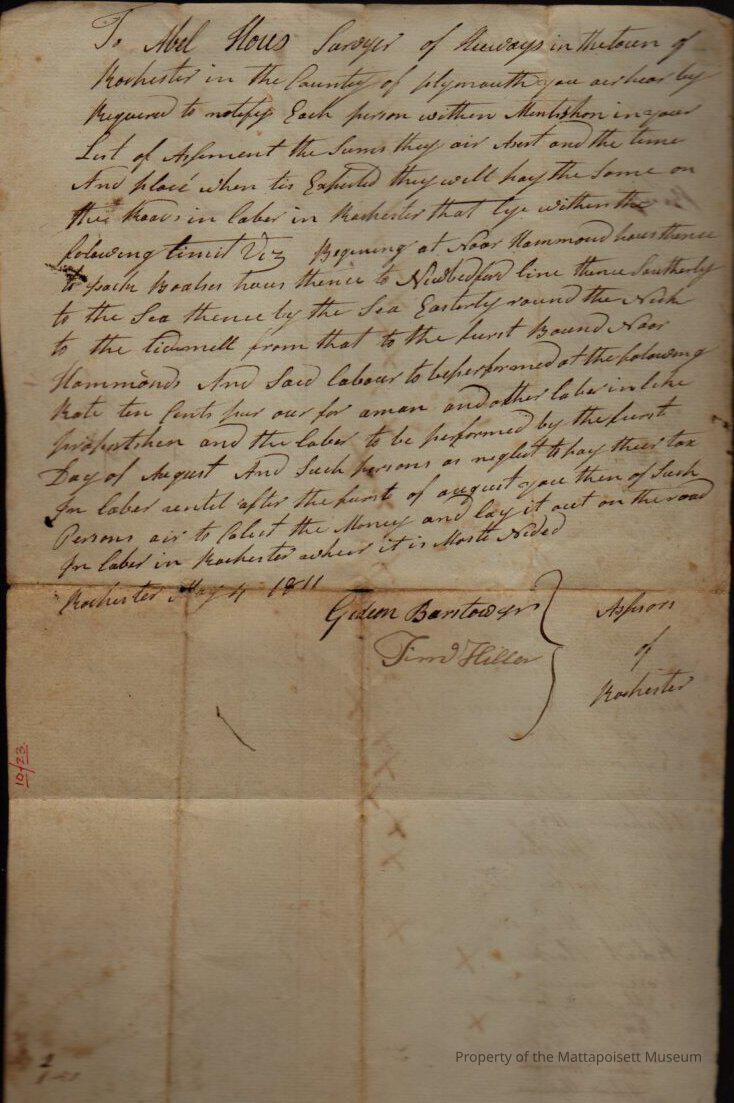 To Abel Hous Sarvyr of Heeways in the town of
Rochester in the County of plymouth you air hear by
Requered to notefy Each person within Mentishon in your
List of Assment the Sums they air Asest and the time
And place when tis Expected they will pay the Same on
the Roads in laber in Rochester that lye within the
folowing limit Viz Begining at Noar Hammond hous thence
to hous thence to Newbedford line thence Southerly
to the Sea thence by the Sea Easterly round the Neck
to the tidemell from that to the furst Bound Noar
Hammonds And Said labour to be performed at the folowing
Rate ten Cents pur our for a man and other laber in like
proportshen and the laber to be performed by the furst
Day of August And Such persons as neglect to pay their tax
In laber untel after the furst of august you then of Such
Persons air to Colect the Money and lay it out on the road
In laber in Rochester whear it is Moste Neded
Rochester May 4 1811
Gideon Barstow
Timo Hiller
Assesors
of
Rochester
10/23
Property of the Mattapoisett Museum